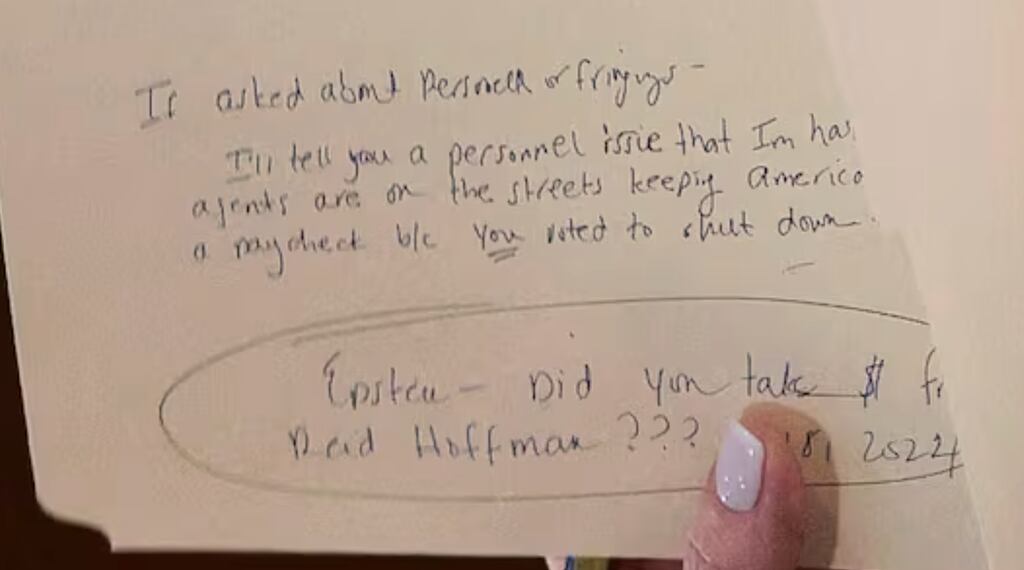 If asked about Personell or firings -
I'll tell you a personnel issie that Im has
agents are on the streets keepig America
a paycheck b/c You voted to shut down
Epstein - Did you take $ fr
Reid Hoffman ???